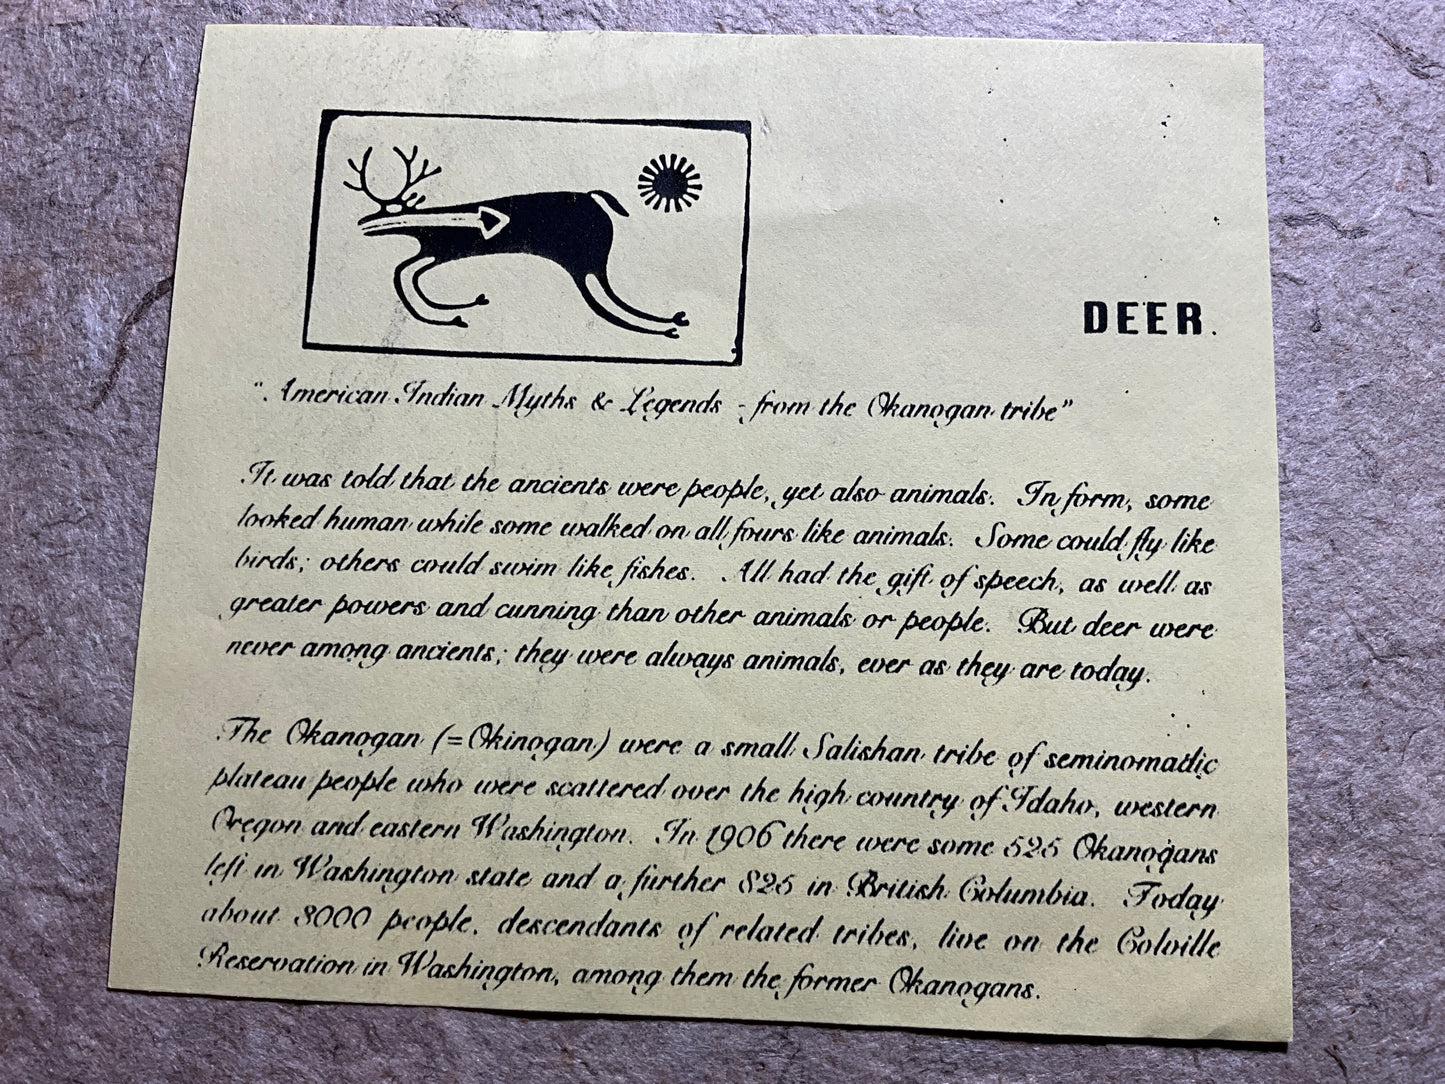 DEER.
"American Indian Myths & Legends - from the Okanogan tribe"
It was told that the ancients were people, yet also animals. In form, some
looked human while some walked on all fours like animals. Some could fly like
birds; others could swim like fishes. All had the gift of speech, as well as
greater powers and cunning than other animals or people. But deer were
never among ancients; they were always animals, ever as they are today.
The Okanogan (=Okinogan) were a small Salishan tribe of seminomadic
plateau people who were scattered over the high country of Idaho, western
Oregon and eastern Washington. In 1906 there were some 525 Okanogans
left in Washington state and a further 825 in British Columbia. Today
about 3000 people, descendants of related tribes, live on the Colville
Reservation in Washington, among them the former Okanogans.